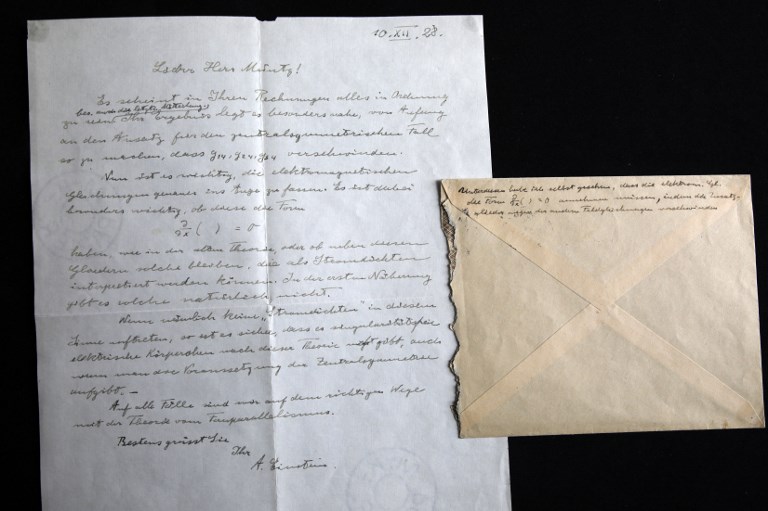 10. XII. 28.
Lieber Herr Müntz!
Es scheint in Ihren Rechnungen alles in Ordnung
bes. auch die letzte Mitteilung
zu sein. Ihr Ergebnis legt es besonders nahe, von Anfang
an den Ansatz für den zentralsymmetrischen Fall
so zu machen, dass g14, g24, g34 verschwinden.
Nun ist es wichtig, die elektromagnetischen
Gleichungen genauer ins Auge zu fassen. Es ist dabei
besonders wichtig, ob diese die Form
∂/∂x ( ) = 0
haben, wie in der alten Theorie, oder ob neben diesen
Gliedern solche bleiben, die als Stromdichten
interpretiert werden können. In der ersten Näherung
gibt es solche natürlich nicht.
Wenn nämlich keine „Stromdichten" in diesem
Sinne auftreten, so ist es sicher, dass es singularitätsfreie
elektrische Körperchen nach dieser Theorie nicht gibt, auch
wenn man die Voraussetzung der Zentralsymmetrie
aufgibt. —
Auf alle Fälle sind wir auf dem richtigen Wege
mit der Theorie vom Fernparallelismus.
Bestens grüsst Sie
Ihr
A. Einstein.
Unterdessen habe ich selbst gesehen, dass die elektrom. Gl.
die Form ∂/∂x ( ) = 0 annehmen müssen, indem die Zusatz-
glieder wegen der andern Feldgleichungen verschwinden